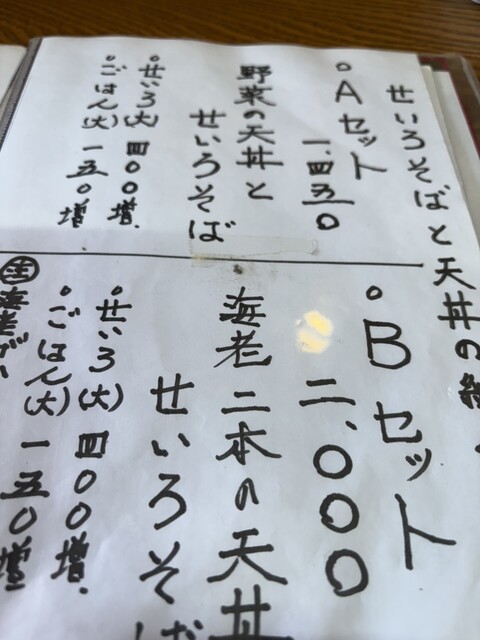 せいろそばと天丼の組
Aセット
一、四五〇
野菜の天丼と
せいろそば
せいろ(大) 四〇〇増.
ごはん(大) 一五〇増.
Bセット
二、〇〇〇
海老二本の天丼
せいろそば
せいろ(大) 四〇〇増.
ごはん(大) 一五〇増
海老が